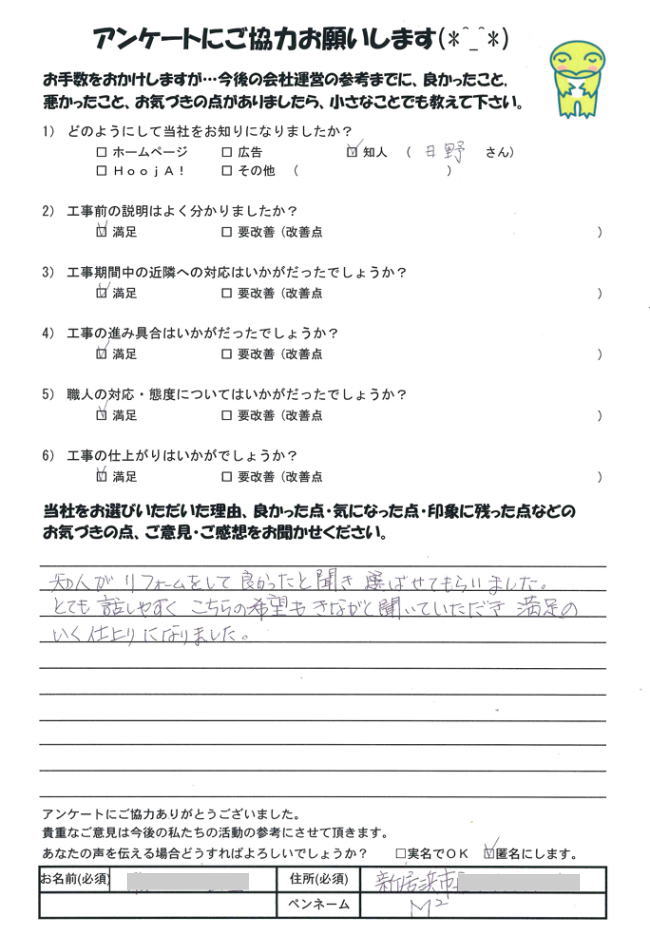 アンケートにご協力お願いします(*^_^*)
お手数をおかけしますが…今後の会社運営の参考までに、良かったこと、
悪かったこと、お気づきの点がありましたら、小さなことでも教えて下さい。
1) どのようにして当社をお知りになりましたか?
□ ホームページ □ 広告 ☑ 知人 ( 日野 さん)
□ HoojA! □ その他 ( )
2) 工事前の説明はよく分かりましたか?
☑ 満足 □ 要改善(改善点 )
3) 工事期間中の近隣への対応はいかがだったでしょうか?
☑ 満足 □ 要改善(改善点 )
4) 工事の進み具合はいかがだったでしょうか?
☑ 満足 □ 要改善(改善点 )
5) 職人の対応・態度についてはいかがだったでしょうか?
☑ 満足 □ 要改善(改善点 )
6) 工事の仕上がりはいかがでしょうか?
☑ 満足 □ 要改善(改善点 )
当社をお選びいただいた理由、良かった点・気になった点・印象に残った点などの
お気づきの点、ご意見・ご感想をお聞かせください。
知人が リフォームをして 良かったと聞き 選ばせてもらいました。
とても 話しやすく こちらの希望も きながに聞いていただき 満足の
いく仕上りになりました。
アンケートにご協力ありがとうございました。
貴重なご意見は今後の私たちの活動の参考にさせて頂きます。
あなたの声を伝える場合どうすればよろしいでしょうか? □実名でOK ☑匿名にします。
お名前(必須) 住所(必須) 新居浜市
ペンネーム M2